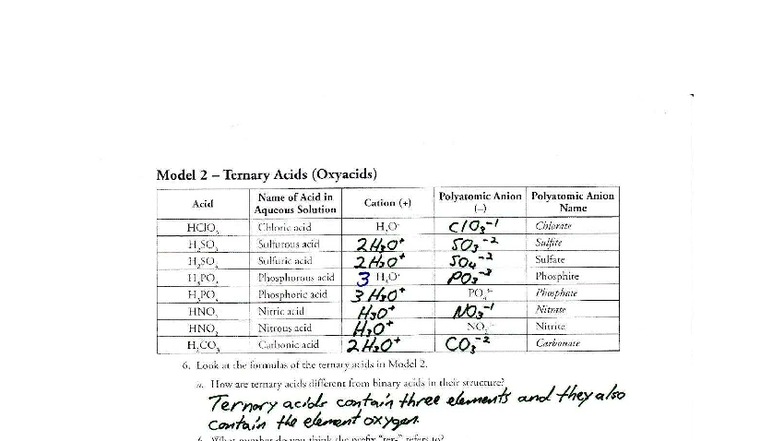 Model 2 – Ternary Acids (Oxyacids)
Acid | Name of Acid in Aqueous Solution | Cation (+) | Polyatomic Anion (–) | Polyatomic Anion Name
HClO₃ | Chloric acid | H₃O⁺ | ClO₃⁻¹ | Chlorate
H₂SO₃ | Sulfurous acid | 2H₃O⁺ | SO₃⁻² | Sulfite
H₂SO₄ | Sulfuric acid | 2H₃O⁺ | SO₄⁻² | Sulfate
H₃PO₃ | Phosphorous acid | 3 H₃O⁺ | PO₃⁻³ | Phosphite
H₃PO₄ | Phosphoric acid | 3H₃O⁺ | PO₄³⁻ | Phosphate
HNO₃ | Nitric acid | H₃O⁺ | NO₃⁻¹ | Nitrate
HNO₂ | Nitrous acid | H₃O⁺ | NO₂⁻ | Nitrite
H₂CO₃ | Carbonic acid | 2H₃O⁺ | CO₃⁻² | Carbonate
6. Look at the formulas of the ternary acids in Model 2.
a. How are ternary acids different from binary acids in their structure?
Ternary acids contain three elements and they also
contain the element oxygen.
b. What number do you think the prefix "ter-" refers to?